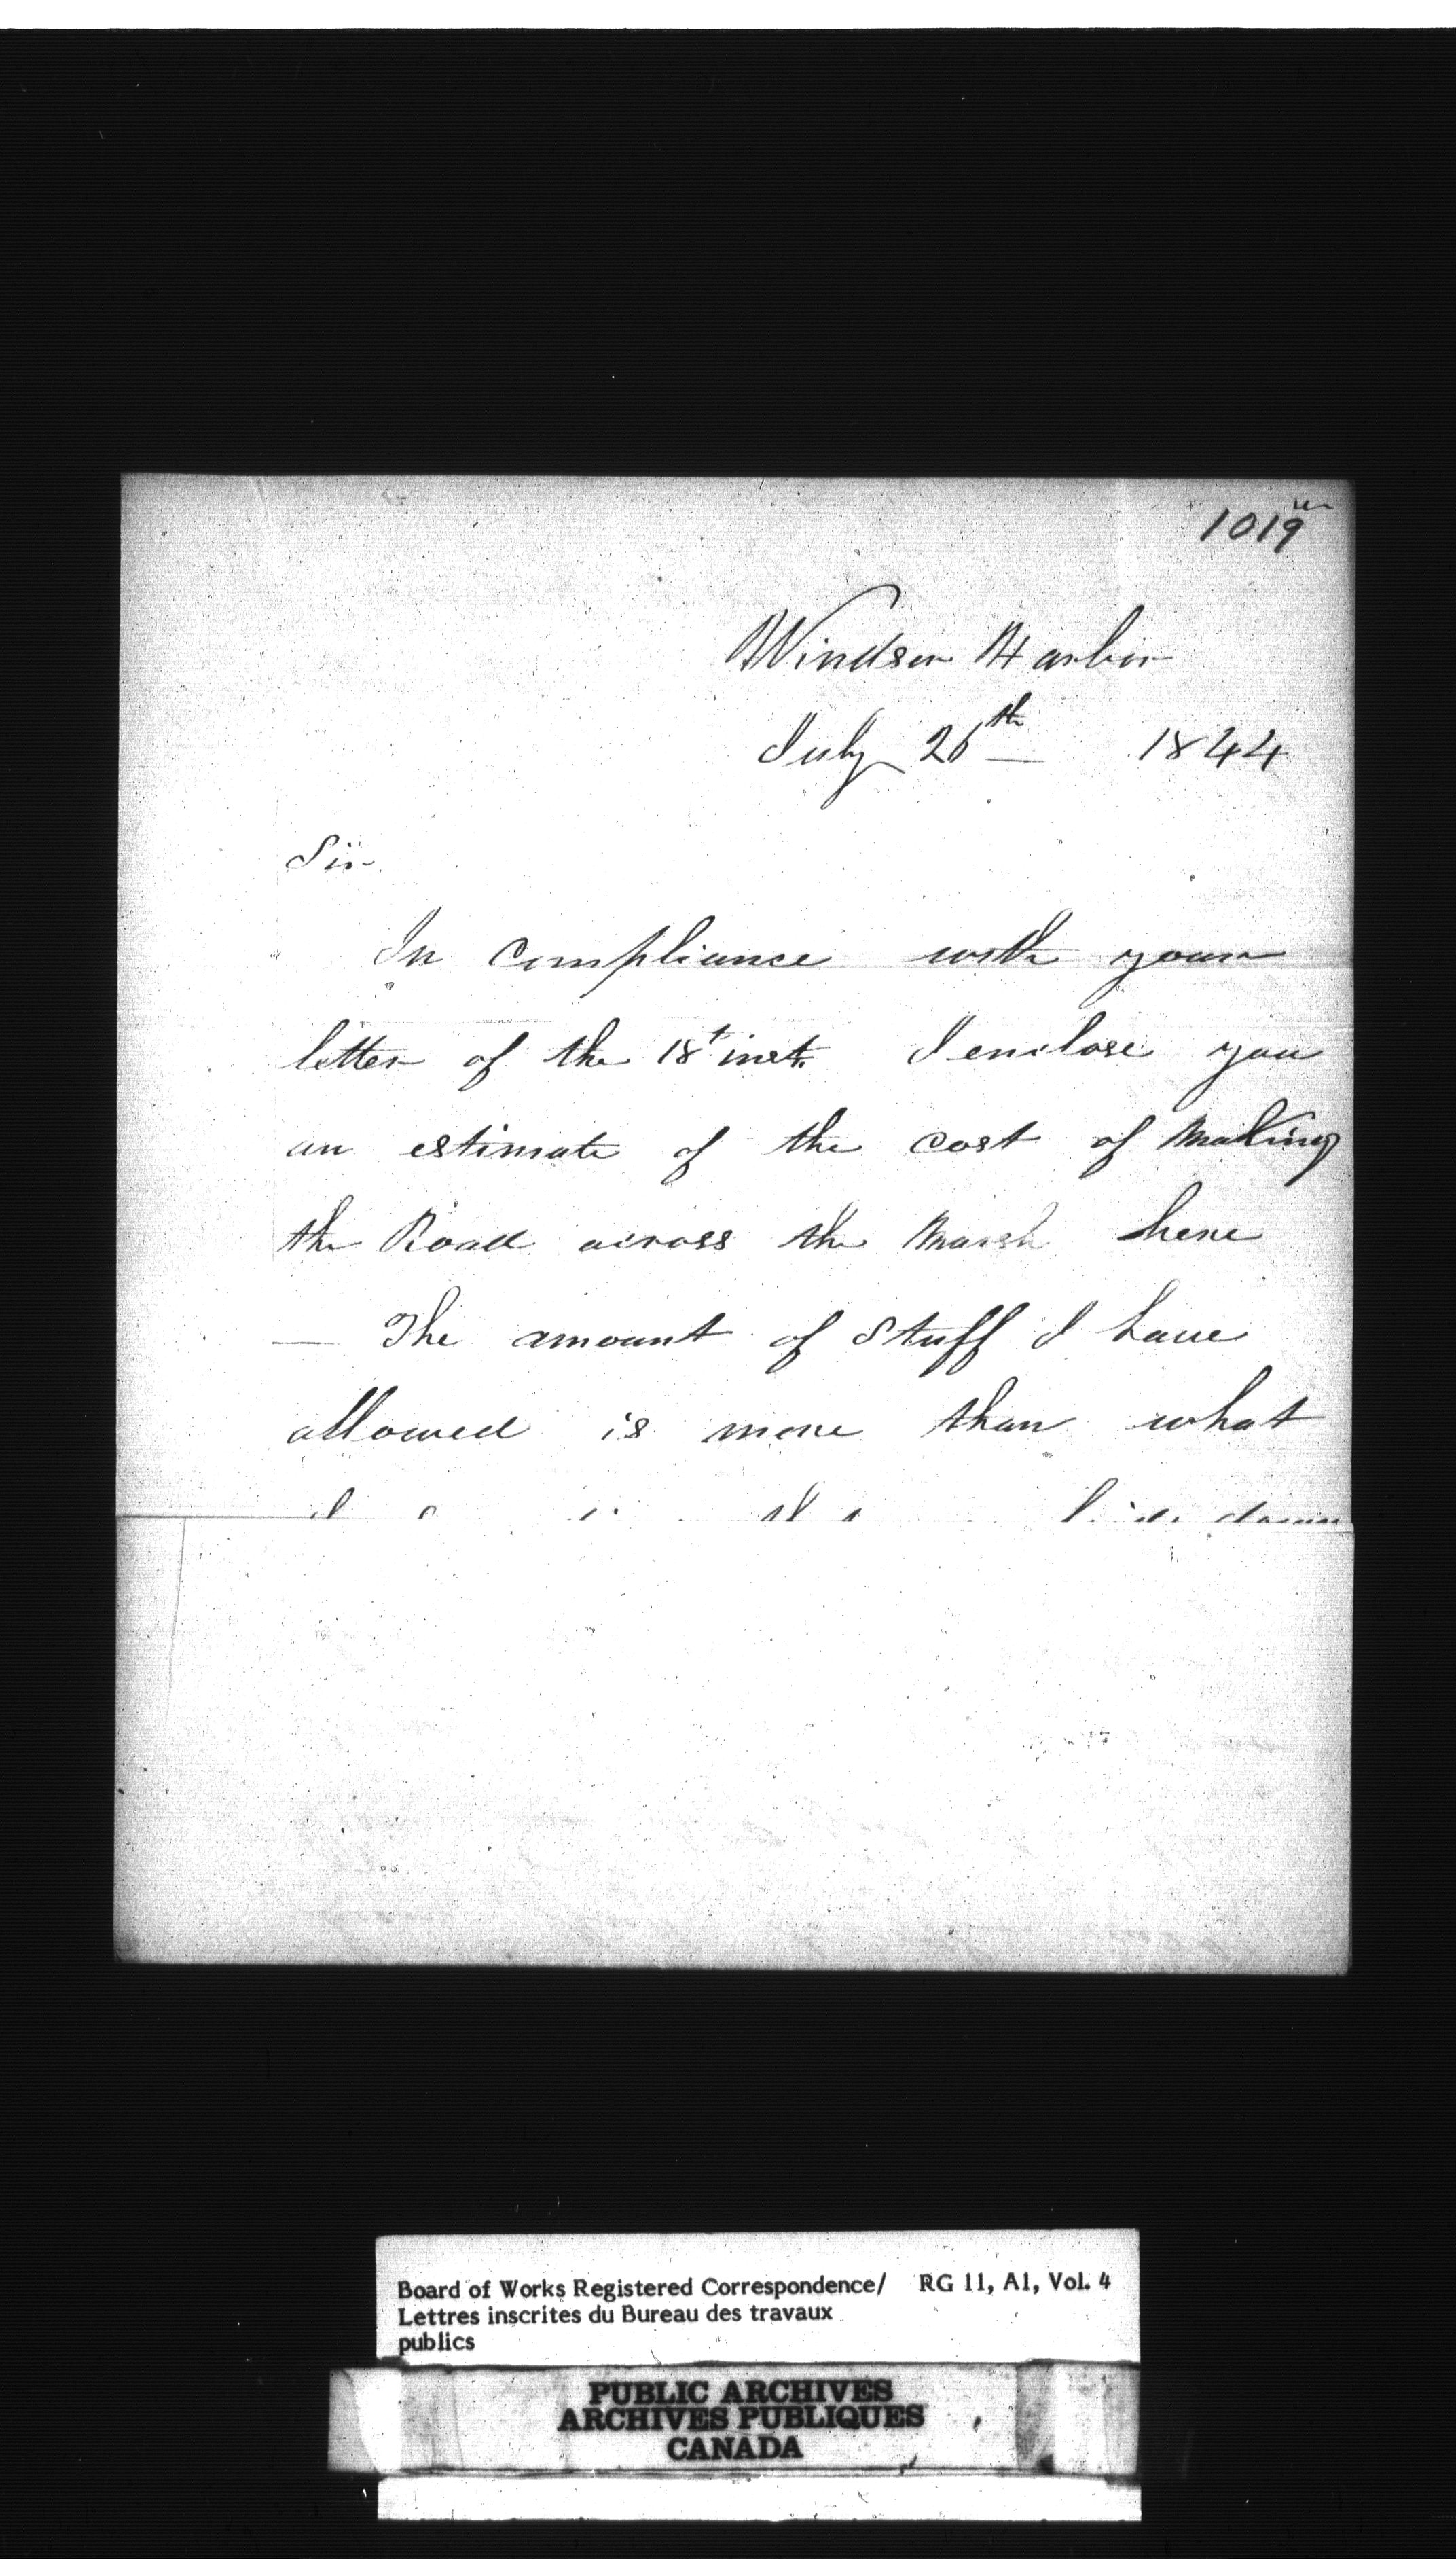 1019
Windsor Harbor
July 26th 1844
Sir
In compliance with your
letter of the 18t inst. I enclose you
an estimate of the cost of Making
the Road across the Marsh here
— The amount of Stuff I have
allowed is more than what
down
Board of Works Registered Correspondence/ RG 11, A1, Vol. 4
Lettres inscrites du Bureau des travaux
publics
PUBLIC ARCHIVES
ARCHIVES PUBLIQUES
CANADA